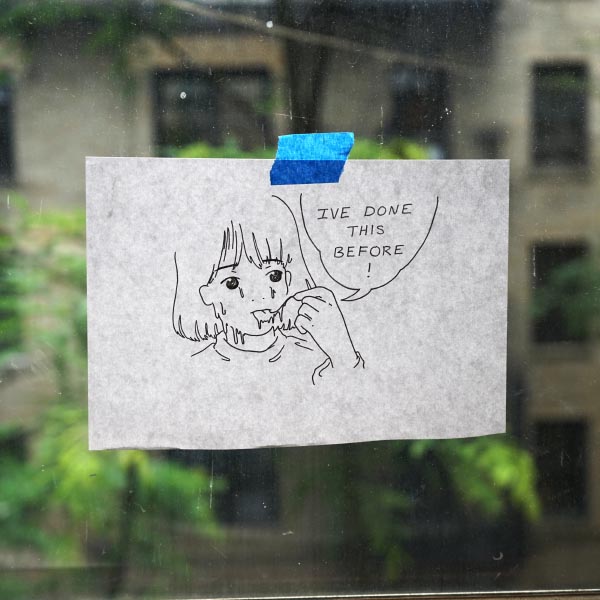 IVE DONE
THIS
BEFORE
!